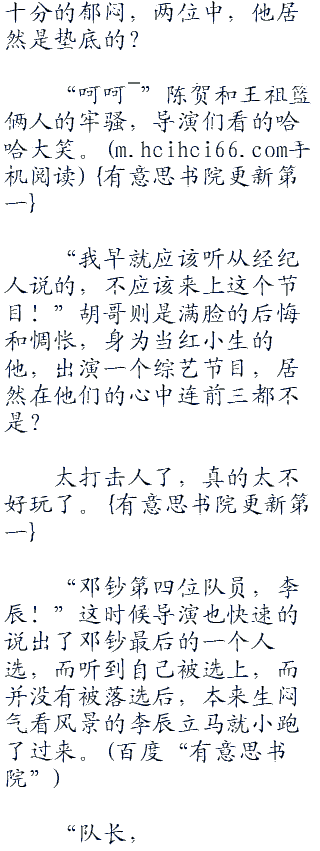 十分的郁闷，两位中，他居
然是垫底的？
“呵呵~”陈贺和王祖篮
俩人的牢骚，导演们看的哈
哈大笑。(m.hcihci66.com手
机阅读){有意思书院更新第
一}
“我早就应该听从经纪
人说的，不应该来上这个节
目！”胡哥则是满脸的后悔
和惆怅，身为当红小生的
他，出演一个综艺节目，居
然在他们的心中连前三都不
是？
太打击人了，真的太不
好玩了。{有意思书院更新第
一}
“邓钞第四位队员，李
辰！”这时候导演也快速的
说出了邓钞最后的一个人
选，而听到自己被选上，而
并没有被落选后，本来生闷
气看风景的李辰立马就小跑
了过来。(百度“有意思书
院”)
“队长，